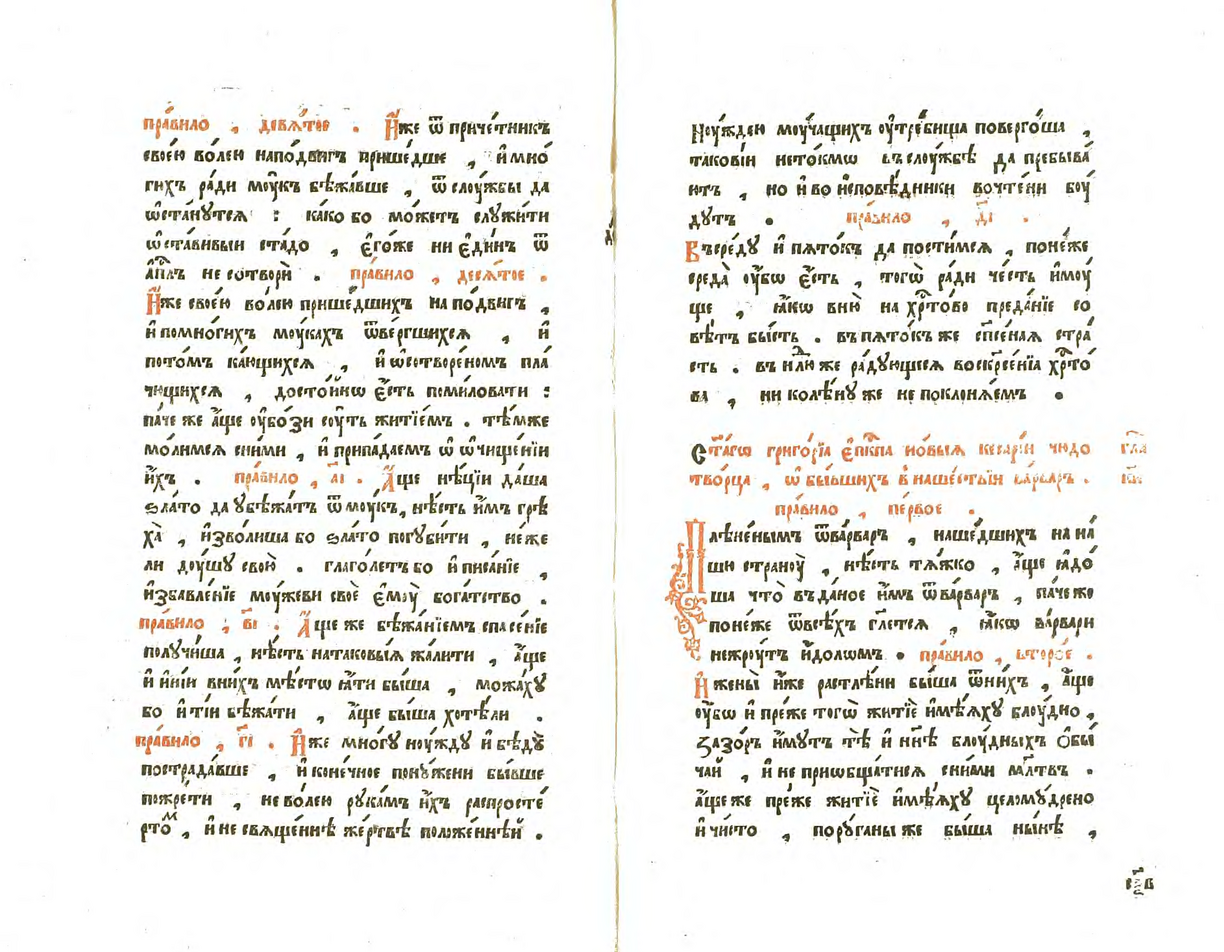 пра́вило , девѧ́тое . И҆́же ѿ приче́тникъ
свое́ю во́лею наподви́гъ прише́дше , и҆ мно́
гихъ ра́ди мꙋ́къ бѣжа́вше , ѿ слꙋ́жбы да
ѡ҆ста́нꙋтсѧ : ка́ко бо мо́жетъ слꙋжи́ти
ѡ҆ста́вивыи ста́до , є҆го́же ни є҆ди́нъ ѿ
а҆пⷭ҇лъ не сотворѝ . пра́вило , десѧ́тое .
И҆́же свое́ю во́лею прише́дшихъ на по́двигъ ,
и҆ помно́гихъ мꙋ́кахъ ѿве́ргшихсѧ , и҆
пото́мъ ка́ющихсѧ , и҆ ѡ҆сотворе́номъ пла́
чющихсѧ , досто́йнѡ є҆́сть поми́ловати :
па́че же а҆́ще ᲂу҆бо́ѕи сꙋ́ть житїе́мъ . тѣ́мже
мо́лимсѧ сни́ми , и҆ припа́даемъ ѡ҆ ѡ҆чище́нїи
и҆́хъ . пра́вило , а҃і . А҆́ще нѣ́цїи да́ша
ѕла́то да ᲂу҆бѣжа́тъ ѿ мꙋ́къ, нѣ́сть и҆́мъ грѣ
ха̀ , и҆зво́лиша бо ѕла́то погꙋби́ти , не́же
ли дꙋ́шꙋ свою̀ . глаго́летъ бо и҆ писа́нїе ,
и҆збавле́нїе мꙋ́жеви своѐ є҆мꙋ̀ бога́тство .
пра́вило , в҃і . А҆́ще же бѣжа́нїемъ спасе́нїе
полꙋчи́ша , нѣ́сть натаковы́ѧ жа́лити , а҆́ще
и҆ и҆ні́и вни́хъ мѣ́стѡ ꙗ҆́ти бы́ша , можа́хꙋ
бо и҆ ті́и бѣжа́ти , а҆́ще бы́ша хотѣ́ли .
пра́вило , г҃і . И҆́же мно́гꙋ нꙋ́ждꙋ и҆ бѣдꙋ̀
пострада́вше , и҆ коне́чное понꙋ́жени бы́вше
пожре́ти , не во́лею рꙋка́мъ и҆́хъ распросте́
ртоⷨ , и҆ не свѧще́ннѣ же́ртвѣ положе́ннѣй .
Нꙋ́ждею мꙋ́чащихъ ᲂу҆тре́бища поверго́ша ,
такові́и нето́кмѡ въслꙋ́жбѣ да пребыва́
ютъ , но и҆ во и҆сповѣ́дники вочте́ни бꙋ́
дꙋтъ . пра́вило , д҃і .
Въсре́дꙋ и҆ пѧто́къ да пости́мсѧ , поне́же
среда̀ ᲂу҆́бѡ є҆́сть , тогѡ̀ ра́ди че́сть и҆мꙋ́
ще , ꙗ҆́кѡ вню̀ на хрⷭ҇то́во преда́нїе со
вѣ́тъ бы́сть . въ пѧто́къ же сп҃се́наѧ стра́
сть . въ нⷣлю же ра́дꙋющесѧ воскрⷭ҇е́нїѧ хрⷭ҇то́
ва , ни колѣ́нꙋ же не поклонѧ́емъ .
Ст҃а́гѡ григо́рїѧ є҆пⷭ҇кпа но́выѧ кесарі́и чюдо
тво́рца , ѡ҆ бы́вшихъ в нашеⷭ҇твїи ва́рваръ .
пра́вило , пе́рвое .
Плѣне́нымъ ѿва́рваръ , наше́дшихъ на на́
шю странꙋ̀ , нѣ́сть тѧ́жко , а҆́ще ꙗ҆до́
ша что̀ въда́ное и҆́мъ ѿ ва́рваръ , па́че же
поне́же ѿвсѣ́хъ гл҃етсѧ , ꙗ҆́кѡ ва́рвари
нежрꙋ́тъ и҆́доломъ . пра́вило , второ́е .
И҆ жены̀ и҆́же растлѣ́ни бы́ша ѿни́хъ , а҆́ще
ᲂу҆́бѡ и҆ пре́же тогѡ̀ житїѐ и҆мѣ́ѧхꙋ блꙋ́дно ,
Ꙁазо́ръ и҆́мꙋтъ тѣ̀ и҆ нн҃ѣ блꙋ́дныхъ ѻ҆бы́
чаи , и҆ не приѡбща́тисѧ сни́ми мл҃твъ .
а҆́ще же пре́же житїѐ и҆мѣ́ѧхꙋ целомꙋ́дрено
и҆ чи́сто , порꙋ́ганы же бы́ша ны́нѣ ,